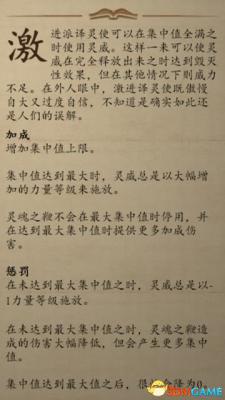 激进派译灵使可以在集中值全满之
时使用灵威。这样一来可以使灵
威在完全释放出来之时达到毁灭
性效果，但在其他情况下则威力
不足。在外人眼中，激进译灵使既傲慢
自大又过度自信，不知道是确实如此还
是人们的误解。
加成
增加集中值上限。
集中值达到最大时，灵威总是以大幅增
加的力量等级来施放。
灵魂之鞭不会在最大集中值时停用，并
在达到最大集中值时提供更多加成伤
害。
惩罚
在未达到最大集中值之时，灵威总是以-
1力量等级施放。
在未达到最大集中值之时，灵魂之鞭造
成的伤害大幅降低，但会产生更多集中
值。
集中值达到最大值之后，很 会降为0。
GAME